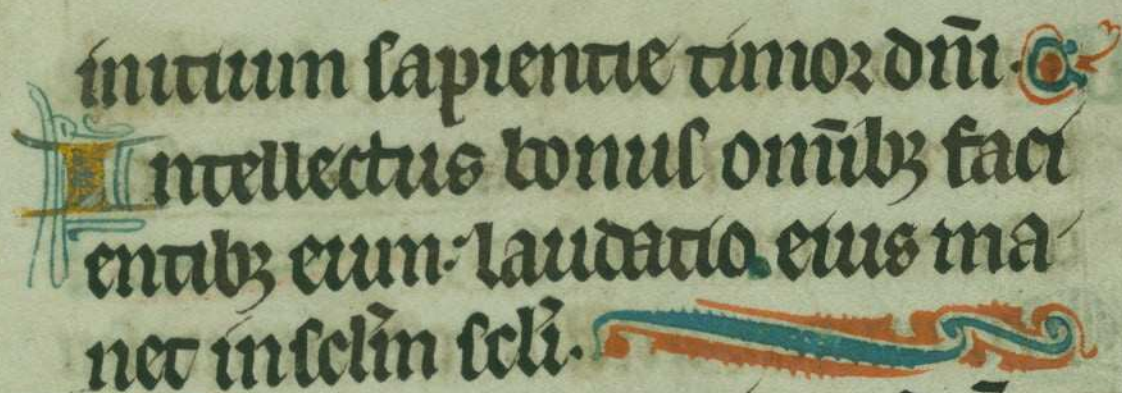 initium sapientie timor dn̄i.
Intellectus bonus om̄ibꝫ faci
entibꝫ eum: laudatio eius ma
net in sclm̄ sclī.